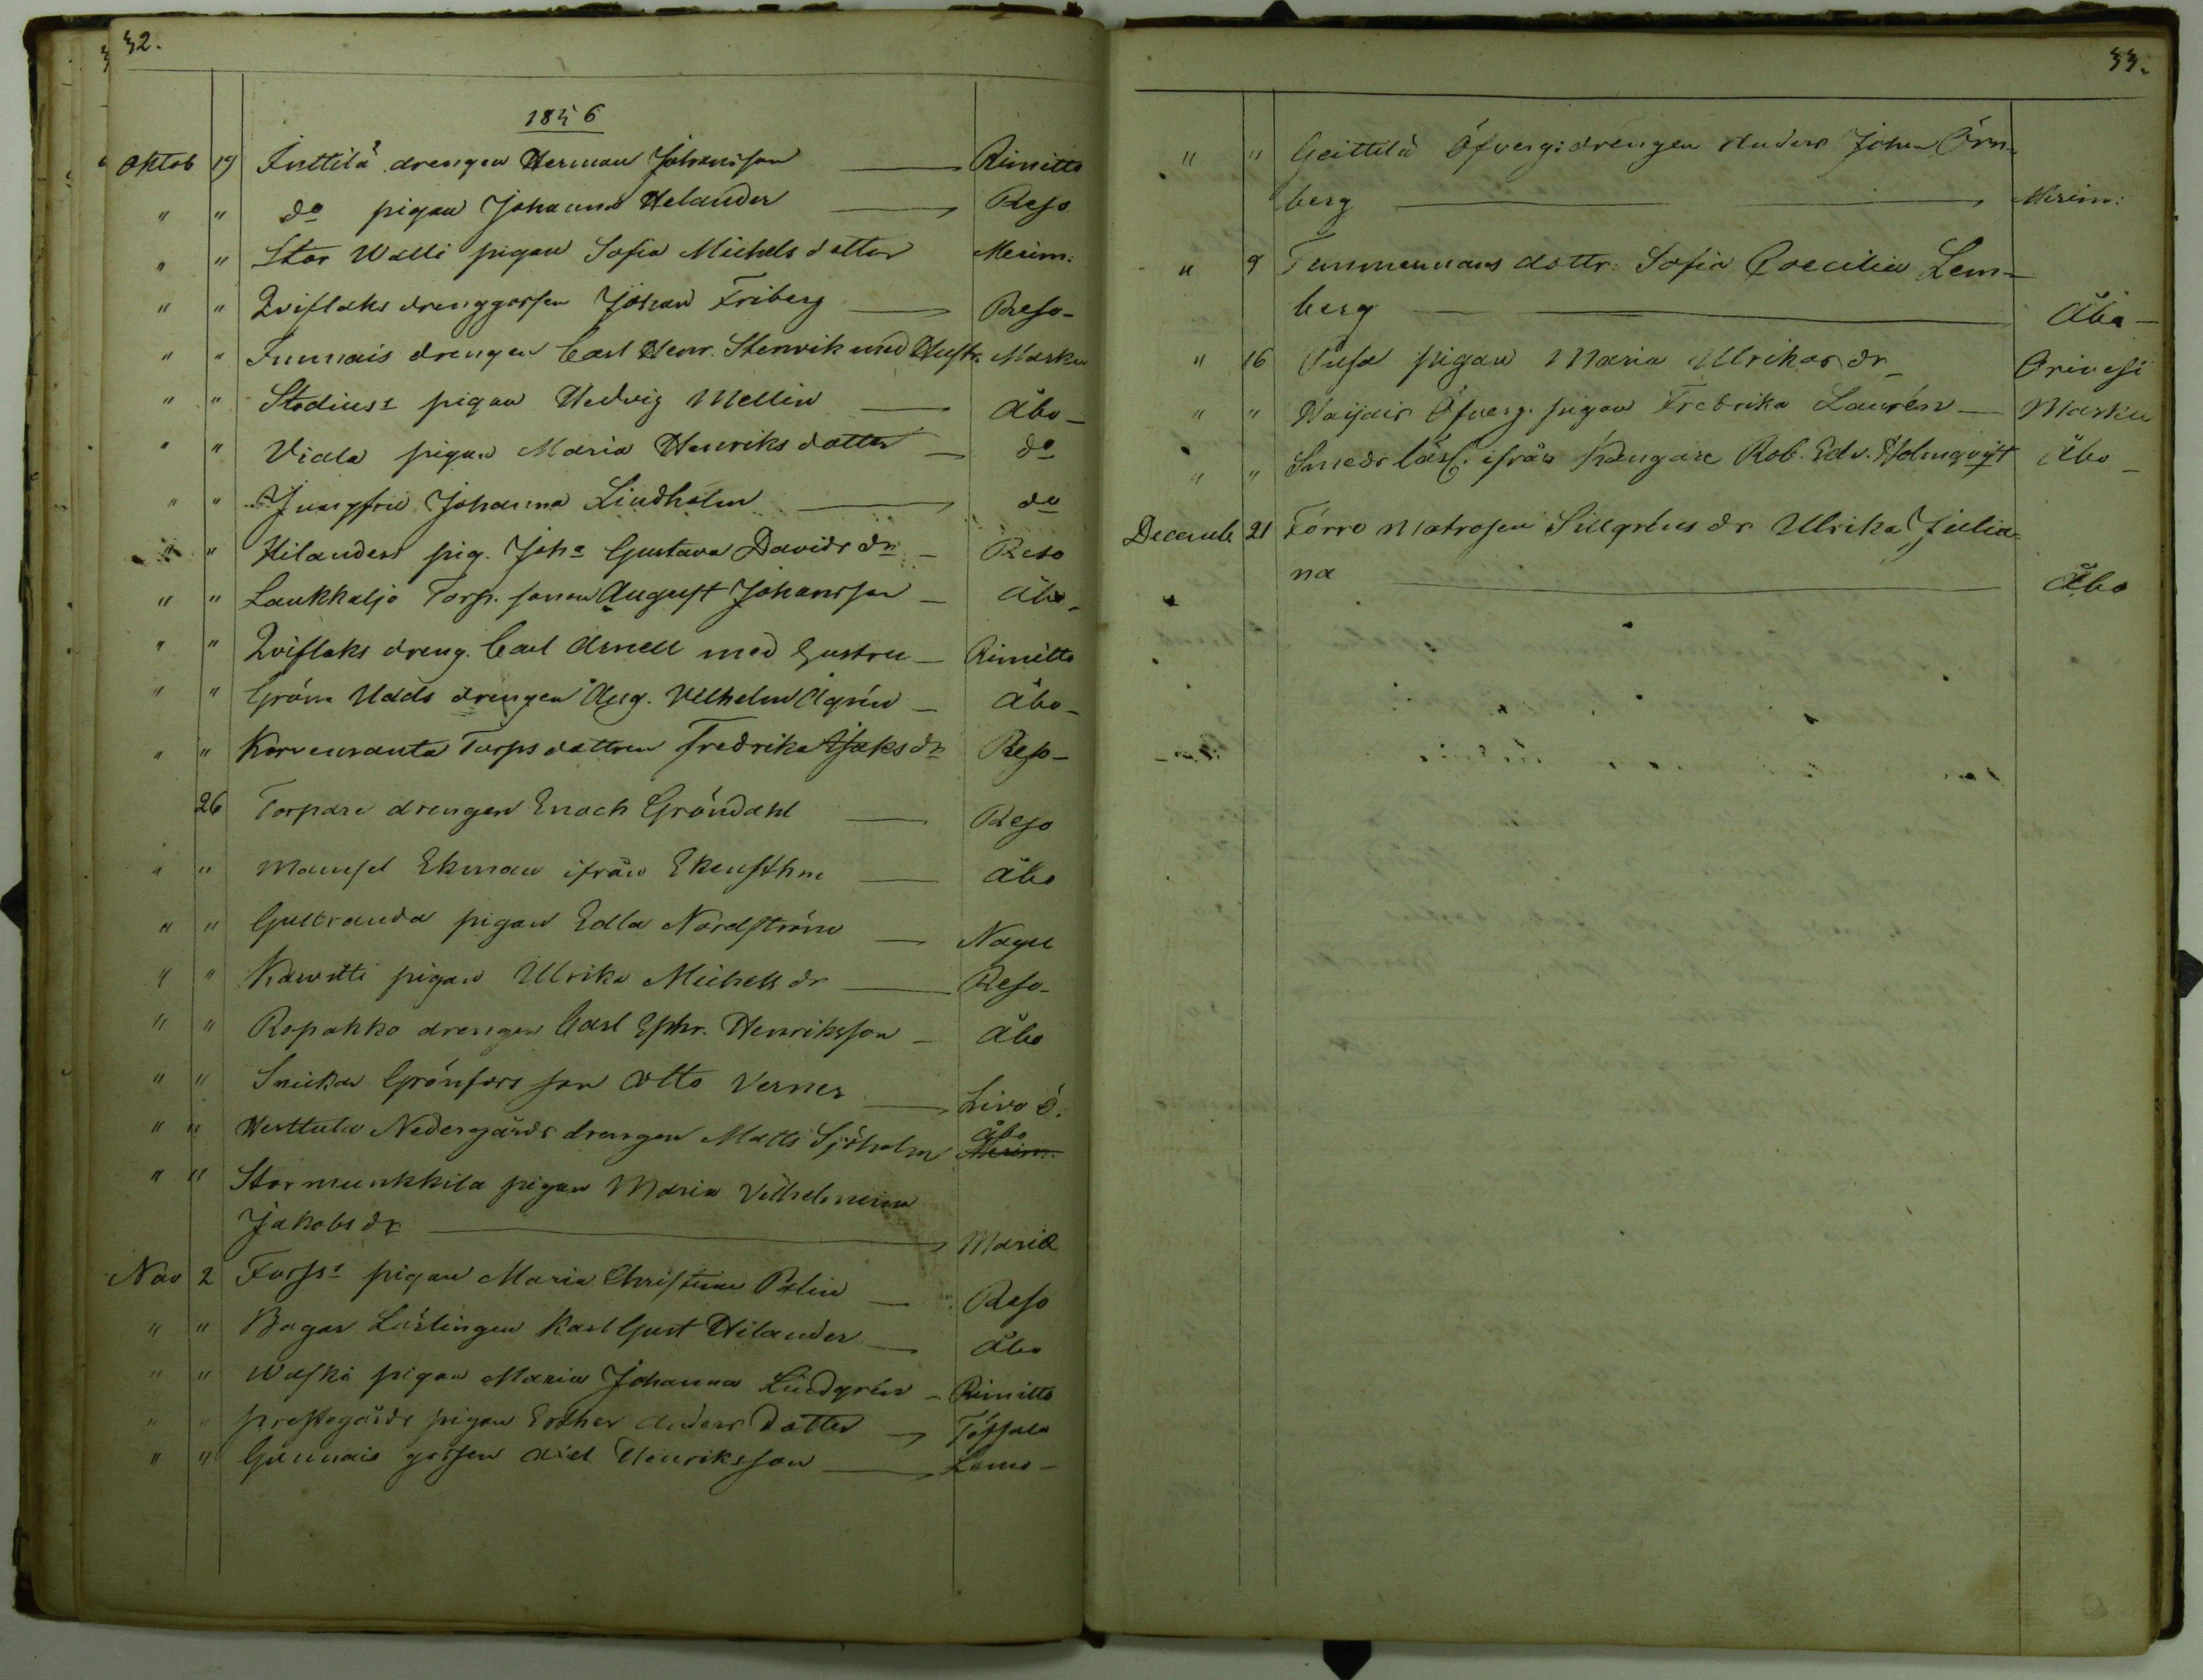 32.
1856
Oktob 19 Inttilä drengen Herman Johansson — Rimitto
" " do pigan Johanna Helander — Reso
" " Stor Walli pigan Sofia Michelsdotter Merim:
" " Qviflaks drenggossen Johan Friberg — Reso-
" " Immais drengen Carl Henr. Stenvik med Hustr. Masku
" " Stodius's pigan Hedvig Mellin — Åbo-
" " Viala pigan Maria Henriksdotter — do
" " Jungfru Johanna Lindholm — do
" " Hilanders pig. Joha Gustava Davidsdr — Reso
" " Laukkaljo Torp. sonen August Johansson — Åbo-
" " Qviflaks dreng. Carl Arnell med hustru — Rimitto
" " Gröna Udds drengen Aug. Vilhelm Ågrén — Åbo-
" " Korvenranta Torpsdottren Fredrika Isaksdr Reso-
26 Torpare drengen Enoch Gröndahl — Reso
" " Mamsel Ekman ifrån Ekensthm — Åbo
" " Gullkranda pigan Edla Nordström — Nagu
" " pigan Ulrika Michelsdr — Reso-
" " Ropakko drengen Carl Ephr. Henriksson — Åbo
" " Snickar Grönfors son Otto Verner — Livo ö.
" " Herttula Nedergårds drengen Matts Sjöholm Åbo Merim:
" " Stormunkkila pigan Maria Vilhelmina
Jakobsdr — Mariæ
Nov 2 Forss's pigan Maria Christina Palin — Reso
" " Bagar Lärlingen Karl Gust Hilander — Åbo
" " Waski pigan Maria Johanna Lindgrén — Rimitto
" " prestegårds pigan Esther Andersdotter — Töfsala
" " Gunnais gossen Axel Henriksson — Lemo-
33.
" " Geittilä Öfverg: drengen Anders Johan Örn-
berg — Merim:
" 9 Timmermans dottr. Sofia Coecilia Lem-
berg — Åbo-
" 16 pigan Maria Ulrikasdr — Oripesi
" " Haijais Öfverg. pigan Fredrika Laurén — Masku
" " Smeds lärl. ifrån Rob. Edv. Holmqvist Åbo-
Decemb 21 Förre Matrosen Sillgréns dr Ulrika Julia-
na — Åbo